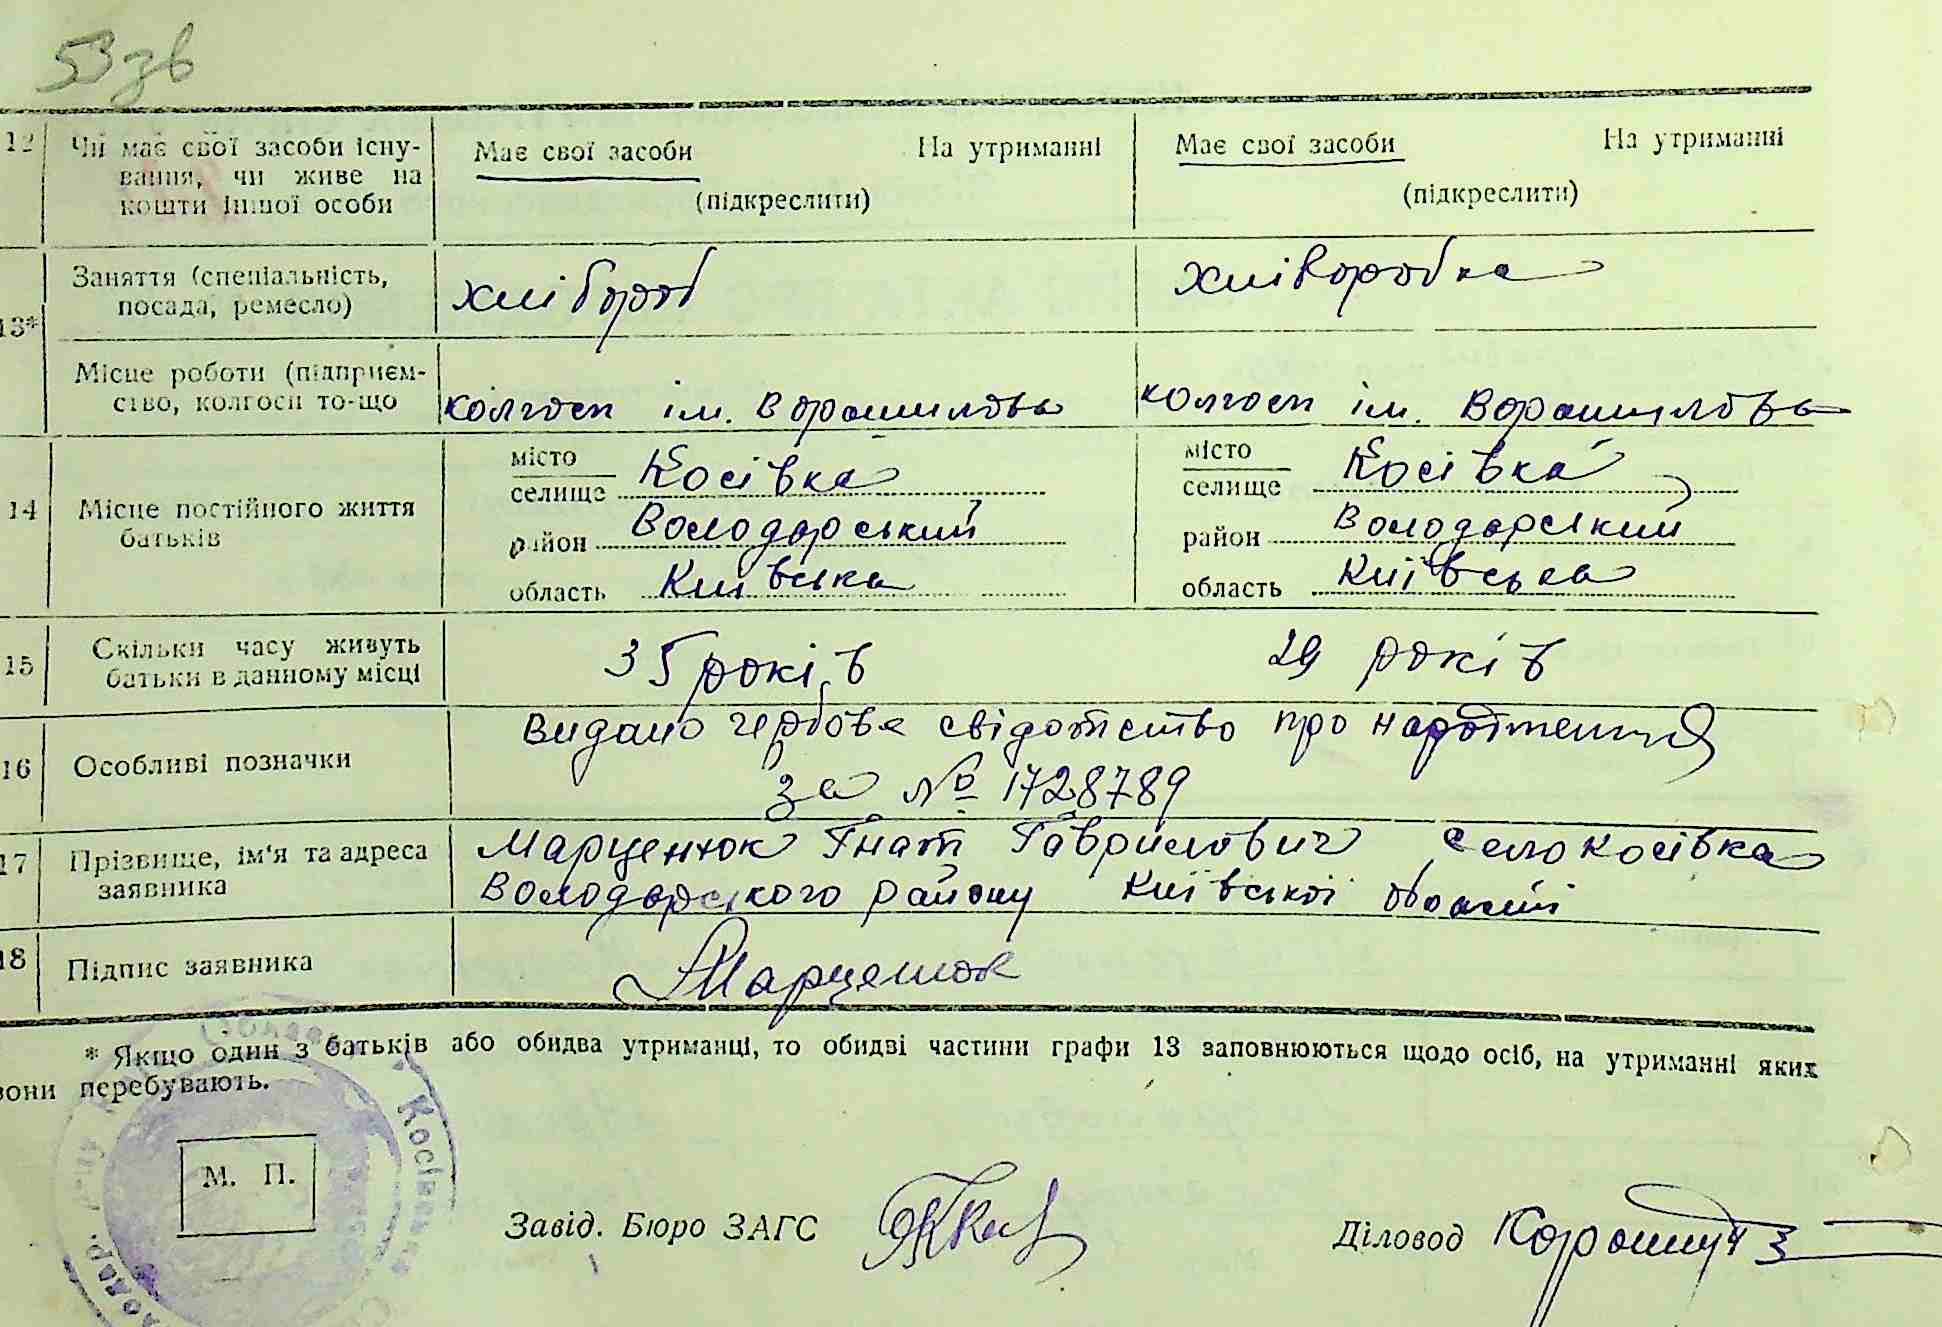 53 зв
12 Чи має свої засоби існу- Має свої засоби На утриманні Має свої засоби На утриманні
вання, чи живе на (підкреслити) (підкреслити)
кошти іншої особи
13* Заняття (спеціальність, хлібороб хліворобка
посада, ремесло)
Місце роботи (підприєм- колгосп ім. Ворошилова колгосп ім. Ворошилова
ство, колгосп то-що
14 Місце постійного життя місто Косівка місто Косівка
батьків селище селище
район Володарський район Володарський
область Київська область Київська
15 Скільки часу живуть 35 років 29 років
батьки в данному місці
16 Особливі позначки Видано гербове свідотство про народження
за № 1728789
17 Прізвище, ім'я та адреса Марценюк Гнат Гаврилович село Косівка
заявника Володарського району Київської області
18 Підпис заявника Марценюк
* Якщо один з батьків або обидва утриманці, то обидві частини графи 13 заповнюються щодо осіб, на утриманні яких
вони перебувають.
Косівська
М. П.
Завід. Бюро ЗАГС
Діловод